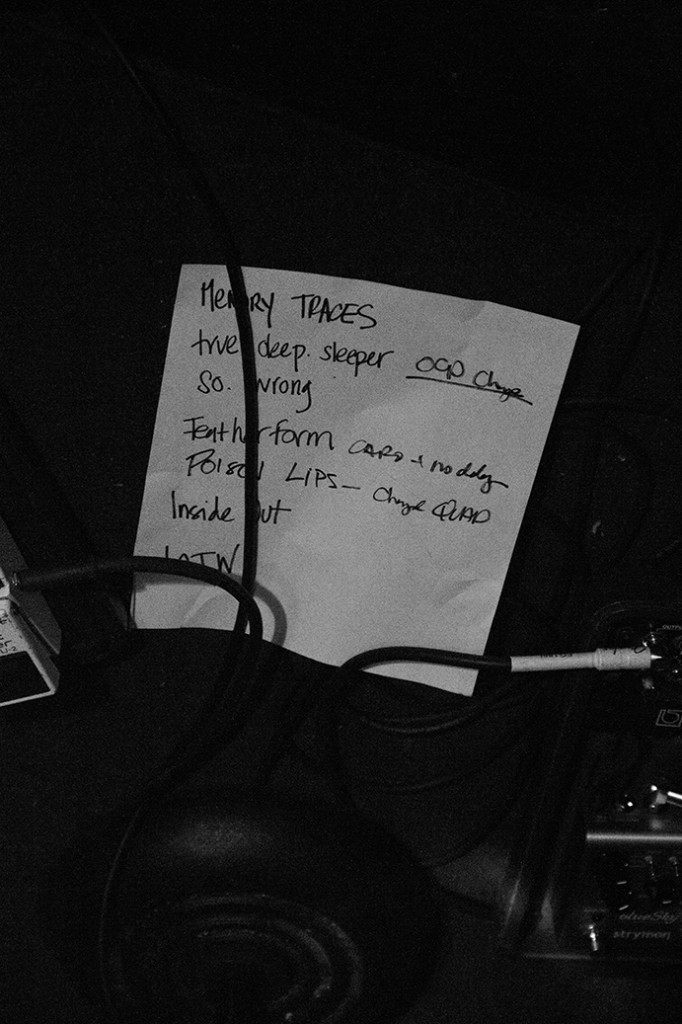 MEMORY TRACES
true deep. sleeper OGD Change
So. wrong
Featherform CARD + no delay
POISON LIPS - Change QUAD
Inside Out
blueSky
strymon